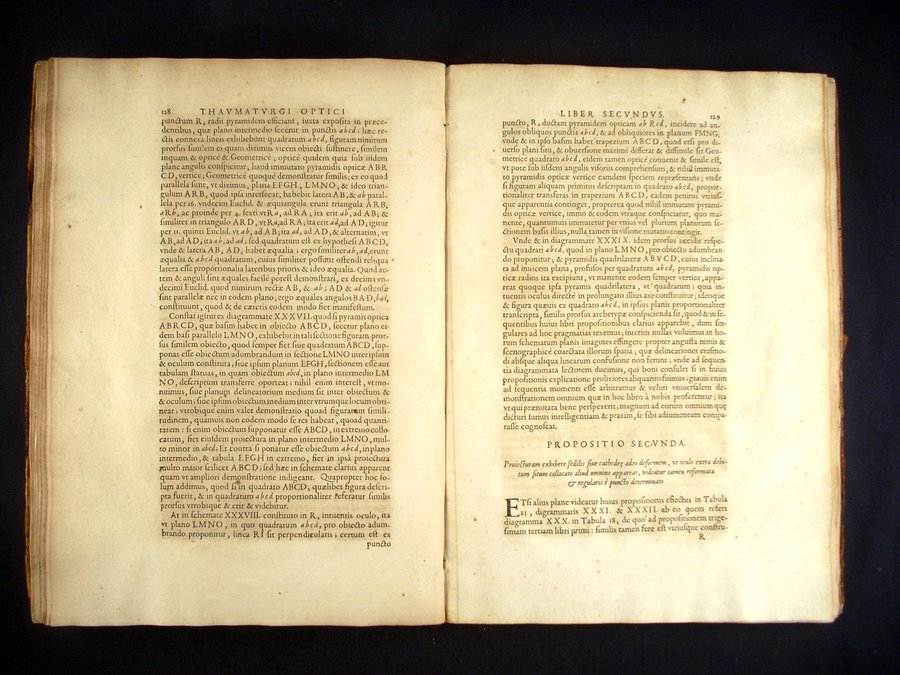 128 THAVMATVRGI OPTICI
punctum R, radij pyramidem efficiant, iuxta exposita in præce-
dentibus, quæ plano intermedio secetur in punctis abcd: hæc re-
ctis connexa lineis exhibebunt quadratum abcd, figuram nimirum
prorsus similem ei quam diximus vicem obiecti sustinere, similem
inquam & opticè & Geometricè; opticè quidem quia sub ijsdem
plane angulis conspicitur, haud immutato pyramidis opticæ ABR
CD, vertice; Geometricè quoque demonstratur similis; ex eo quod
parallela sunt, vt diximus, plana EFGH, LMNO, & ideo trian-
gulum ARB, quod ipsa intersecat, habebit latera AB, & ab paral-
lela per 16. vndecim Euclid. & æquiangula erunt triangula ARB,
aRb, ac proinde per 4. sexti vt Ra, ad RA; ita erit ab, ad AB; &
similiter in triangulo ARD, vt Ra, ad RA; ita erit ad, ad AD; igitur
per 11. quinti Euclid. vt ab, ad AB; ita ad, ad AD, & alternatim, vt
AB, ad AD, ita ab, ad ad; sed quadratum est ex hypothesi ABCD,
vnde & latera AB, AD, habet æqualia; ergo similiter ab, ad, erunt
æqualia & abcd quadratum, cuius similiter possunt ostendi reliqua
latera esse proportionalia lateribus prioris & ideo æqualia. Quod au-
tem & anguli sint æquales facilè potest demonstrari, ex decima vn-
decimi Euclid. quod nimirum rectæ AB, & ab; AD & ad ostensæ
sint parallelæ nec in eodem plano; ergo æquales angulos BAD, bad,
constituunt, quod & de cæteris eodem modo fiet manifestum.
Constat igitur ex diagrammate XXXVII. quod si pyramis optica
ABRCD, quæ basim habet in obiecto ABCD, secetur plano ei-
dem basi parallelo LMNO, exhibebit in tali sectione figuram pror-
sus similem obiecto, quod semper fiet siue quadratum ABCD, sup-
ponas esse obiectum adumbrandum in sectione LMNO interipsum
& oculum constituta, siue ipsum planum EFGH, sectionem esse aut
tabulam statuas, in quam obiectum abcd, in plano intermedio LM
NO, descriptum transferre oporteat: nihil enim interest, vt mo-
nuimus, siue planum delineatorium medium sit inter obiectum &
& oculum; siue ipsum obiectum medium inter vtrumque locum obti-
neat; vtrobique enim valet demonstratio quoad figurarum simili-
tudinem, quamuis non eodem modo se res habeat, quoad quanti-
tatem: si enim obiectum supponatur esse ABCD, in extremo collo-
catum, fiet eiusdem proiectura in plano intermedio LMNO, mul-
to minor in abcd; Et contra si ponatur esse obiectum abcd, in plano
intermedio, & tabula EFGH in extremo, fiet in ipsa proiectura
multo maior scilicet ABCD; sed hæc in schemate clarius apparent
quam vt ampliori demonstratione indigeant. Quapropter hoc so-
lum addimus, quod si in quadrato ABCD, quælibet figura descri-
pta fuerit, & in quadratum abcd proportionaliter referatur similis
prorsus vtrobique & erit & videbitur.
At in schemate XXXVIII. constituto in R, intuentis oculo, ita
vt plano LMNO, in quo quadratum abcd, pro obiecto adum-
brando proponitur, linea RI sit perpendicularis; certum est ex
puncto
LIBER SECVNDVS. 129
puncto, R, ductam pyramidem opticam ab Rcd, incidere ad an-
gulos obliquos punctis abcd, & ad obliquiores in planum FMNG,
vnde & in ipso basim habet trapezium ABCD, quod etsi pro di-
uerso plani situ, & obuersione maximè differat & dissimile sit Geo-
metricè quadrato abcd, eidem tamen opticè conuenit & simile est,
vt pote sub ijsdem angulis visorijs comprehensum, & nihil immuta-
to pyramidis opticæ vertice eamdem speciem repræsentans; vnde
si figuram aliquam primitus descriptam in quadrato abcd, propor-
tionaliter transferas in trapezium ABCD, eadem penitus vtriuf-
que apparentia continget, propterea quod nihil immutato pyrami-
dis opticæ vertice, immo & eodem vtraque conspiciatur, quo ma-
nente, quantumuis immutetur per vnius vel plurium planorum se-
ctionem basis illius, nulla tamen in visione mutatio contingit.
Vnde & in diagrammate XXXIX. idem prorsus accidit respe-
ctu quadrati abcd. quod in plano LMNO, pro obiecto adumbran-
do proponitur; & pyramidis quadrilateræ ABVCD, cuius inclina-
ta ad inuicem plana, profusos per quadratum abcd, pyramidis op-
ticæ radios ita excipiunt, vt manente eodem semper vertice, appa-
reat quoque ipsa pyramis quadrilatera, vt quadratum; quia in-
tuentis oculus directè in prolongato illius axe constituitur; ideoque
& figura quæuis ex quadrato abcd, in ipsius planis proportionaliter
transcripta, similis prorsus archetypæ conspicienda sit, quod & in se-
quentibus huius libri propositionibus clarius apparebit, dum sin-
gulares ad hoc pragmatias texemus; interim nullas voluimus in ho-
rum schematum planis imagines effingere propter angusta nimis &
scenographicè coarctata illorum spatia; quæ delineationes eiusmo-
di absque aliqua linearum confusione non ferunt: vnde ad sequen-
tia diagrammata lectorem ducimus, qui boni consulet si in huius
propositionis explicatione prolixiores aliquanto fuimus; grauis enim
ad sequentia momenti esse arbitramur & veluti vniuersalem de-
monstrationem omnium quæ in hoc libro à nobis proferentur, ita
vt qui prænotata bene perspexerit, magnum ad eorum omnium quæ
dicturi sumus intelligentiam & praxim, se sibi adiumentum compa-
rasse cognoscat.
PROPOSITIO SECVNDA.
Proiecturam exhibere sedilis siue cathedræ adeo deformem, vt oculo extra debi-
tum situm collocato aliud omnino appareat, videatur tamen reformata
& regularis è puncto determinato
ETsi alius plane videatur huius propositionis effectus in Tabula
21, digrammatis XXXI. & XXXII. ab eo quem refert
diagramma XXX. in Tabula 18, de quo ad propositionem trige-
simam tertiam libri primi: similis tamen fere est vtriusque constru-
R